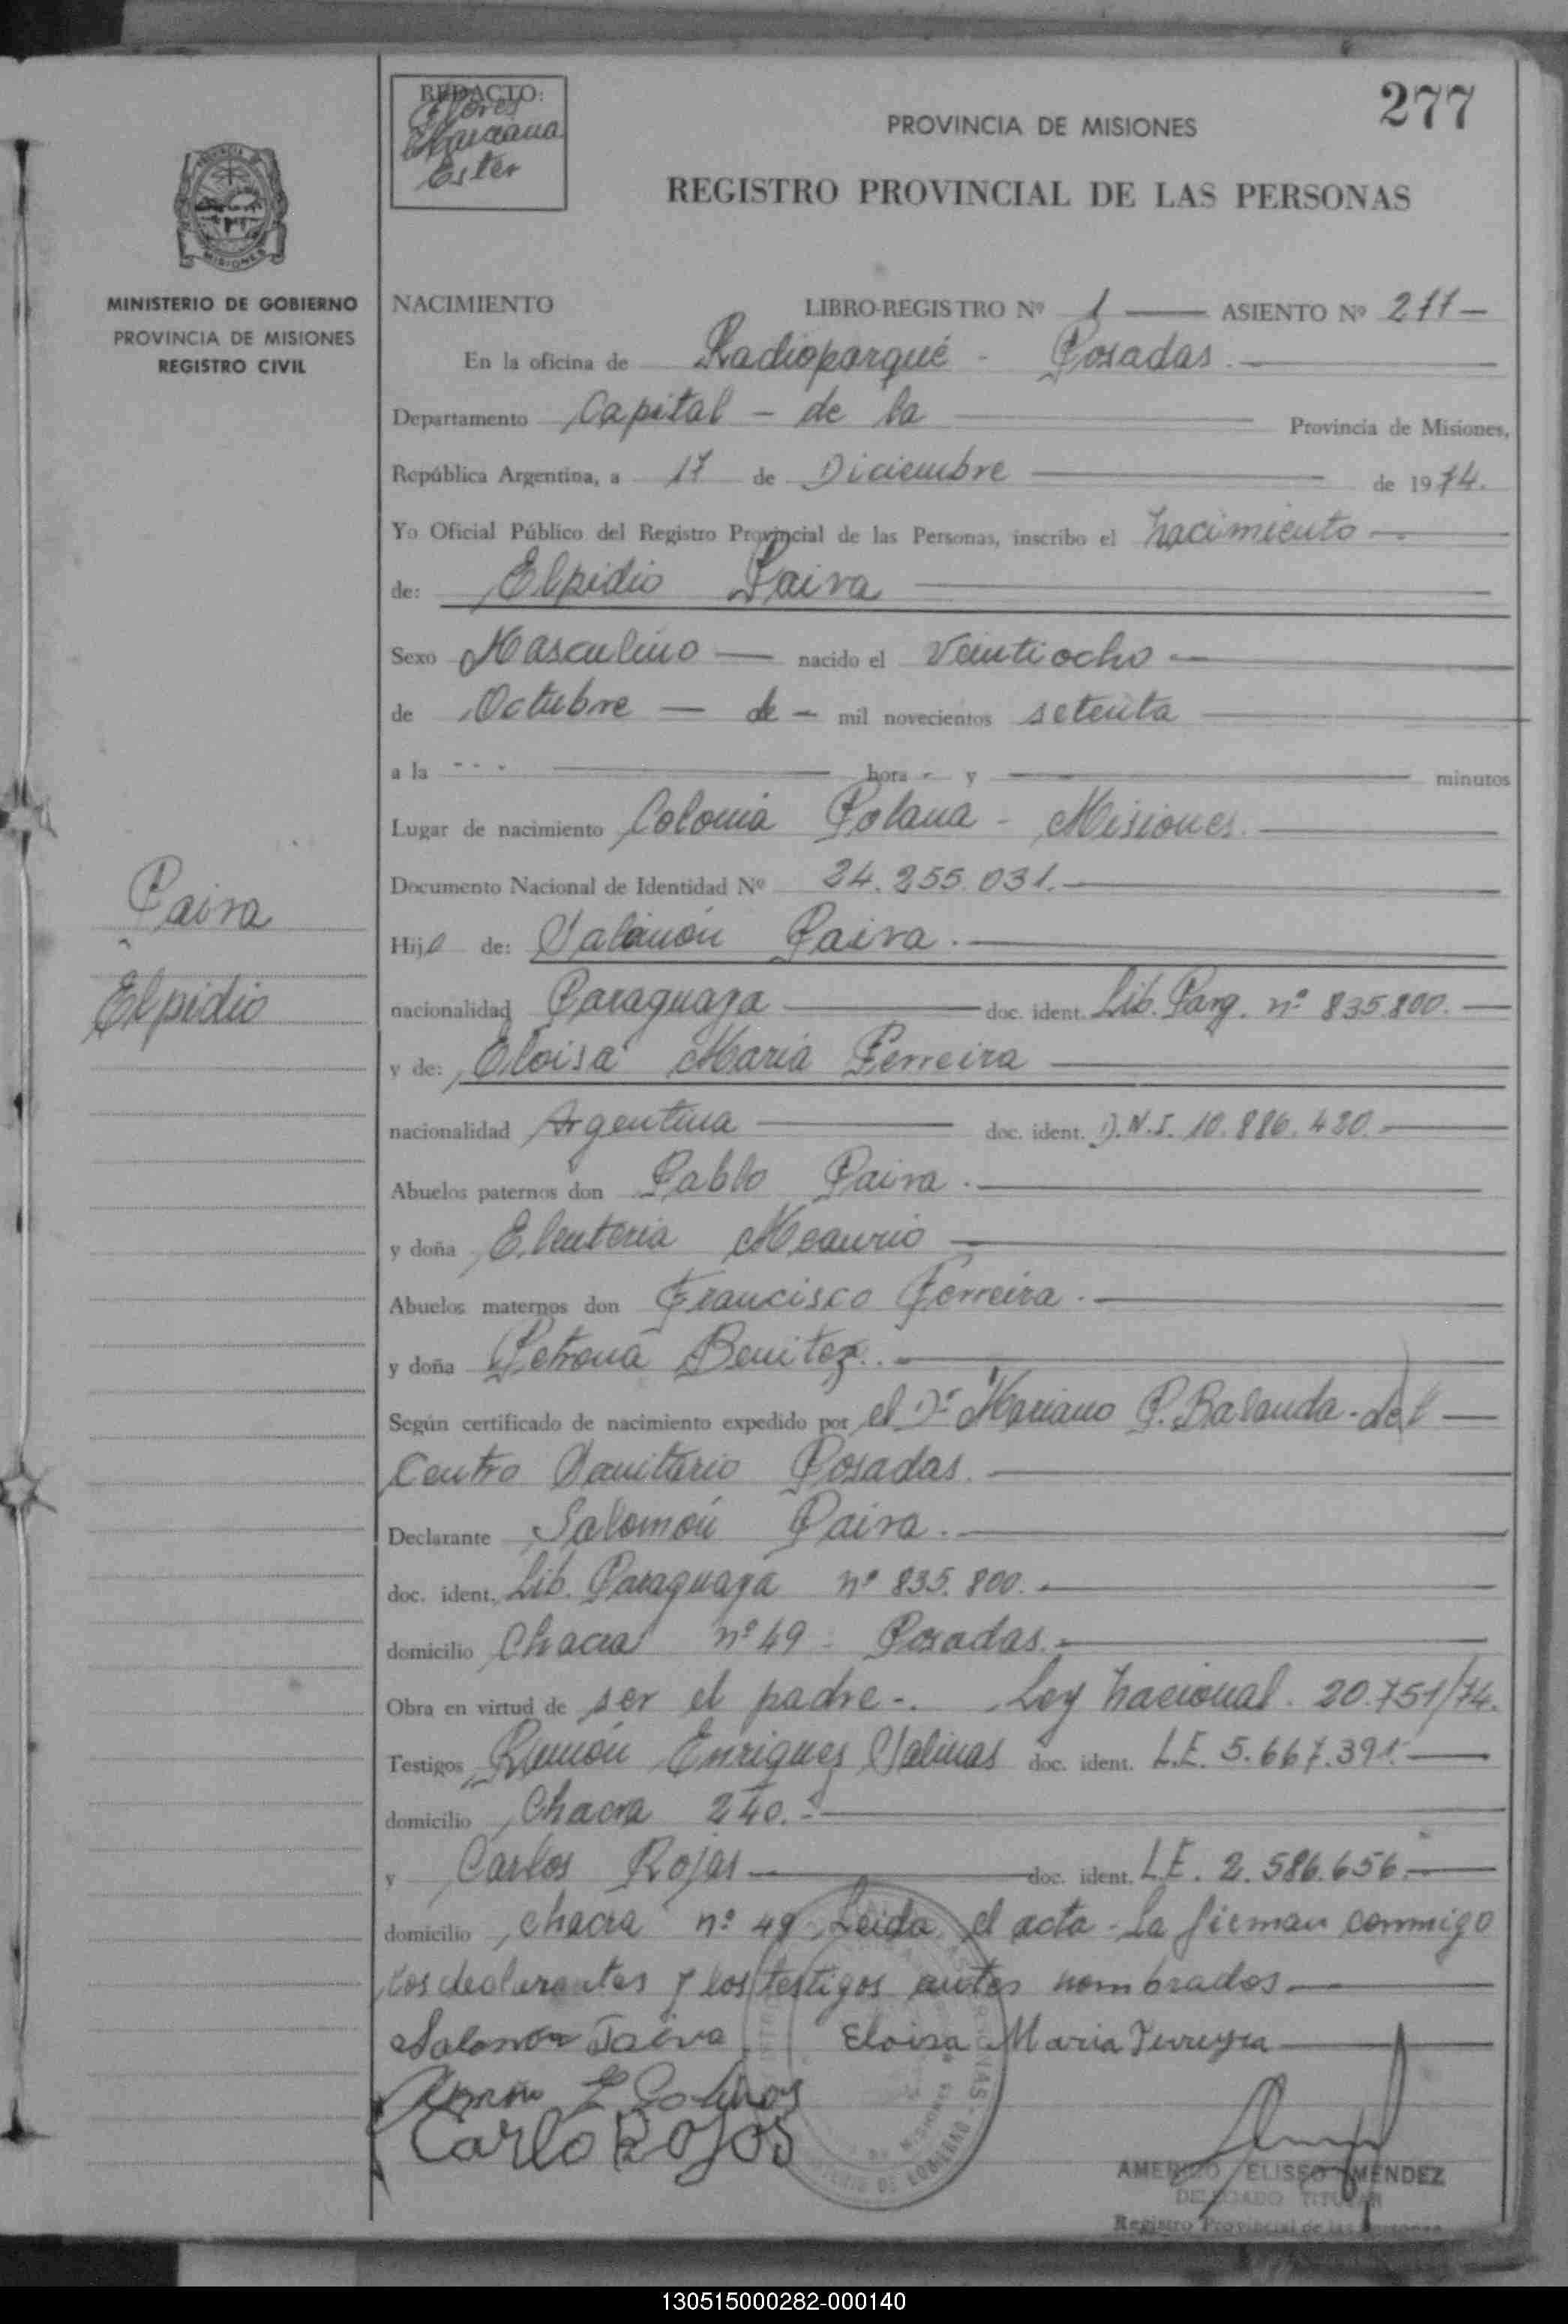 277
REDACTO:
Flores
Ester
PROVINCIA DE MISIONES
REGISTRO PROVINCIAL DE LAS PERSONAS
PROVINCIA DE
MISIONES
MINISTERIO DE GOBIERNO
PROVINCIA DE MISIONES
REGISTRO CIVIL
NACIMIENTO LIBRO-REGISTRO Nº 1 — ASIENTO Nº 211 —
En la oficina de Radioparque - Posadas.
Departamento Capital - de la Provincia de Misiones,
República Argentina, a 17 de Diciembre de 1974.
Yo Oficial Público del Registro Provincial de las Personas, inscribo el nacimiento
de: Elpidio Paiva
Sexo Masculino — nacido el Veintiocho
de Octubre — de — mil novecientos setenta
a la - - - hora - y minutos
Lugar de nacimiento Colonia Polana - Misiones.
Documento Nacional de Identidad Nº 24.255.031.
Paiva
Elpidio
Hijo de: Salomón Paiva.
nacionalidad Paraguaya doc. ident. Lib. Parg. nº 835.800.
y de: Eloisa Maria Ferreira
nacionalidad Argentina doc. ident. D.N.I. 10.886.420.
Abuelos paternos don Pablo Paiva.
y doña Eleuteria Meaurio
Abuelos maternos don Francisco Ferreira.
y doña Petrona Benitez.
Según certificado de nacimiento expedido por el Dr. Mariano P. Balanda - del
Centro Sanitario Posadas.
Declarante Salomón Paiva.
doc. ident. Lib. Paraguaya nº 835.800.
domicilio Chacra nº 49 - Posadas.
Obra en virtud de ser el padre -. Ley nacional 20.751/74.
Testigos Ramón Enriques Salinas doc. ident. L.E. 5.667.391.
domicilio Chacra 240.-
y Carlos Rojas doc. ident. L.E. 2.586.656.
domicilio chacra nº 49 Leida el acta - La firman conmigo
los declarantes y los testigos antes nombrados.
Salomon Paiva Eloisa Maria Ferreyra
Ramon E Salinas
Carlo Rojos
AMERICO ELISEO MENDEZ
DELEGADO TITULAR
Registro Provincial de las Personas
130515000282-000140